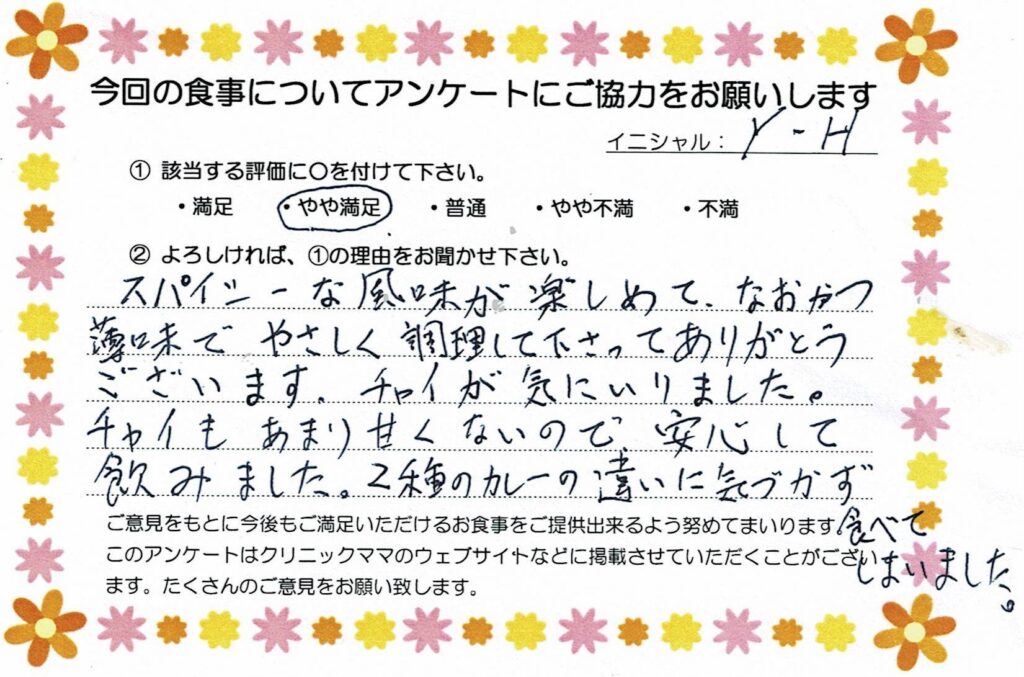 今回の食事についてアンケートにご協力をお願いします
イニシャル： Y-H
① 該当する評価に〇を付けて下さい。
・満足 ・やや満足 ・普通 ・やや不満 ・不満
② よろしければ、①の理由をお聞かせ下さい。
スパイシーな風味が楽しめて、なおかつ
薄味で やさしく調理して下さってありがとう
ございます、チャイが気にいりました。
チャイも あまり甘くないので、安心して
飲みました。2種のカレーの違いに気づかず
食べて
しまいました。
ご意見をもとに今後もご満足いただけるお食事をご提供出来るよう努めてまいります。
このアンケートはクリニックママのウェブサイトなどに掲載させていただくことがござい
ます。たくさんのご意見をお願い致します。